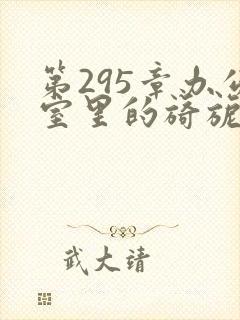 第295章办公
室里的旖旎
武大靖